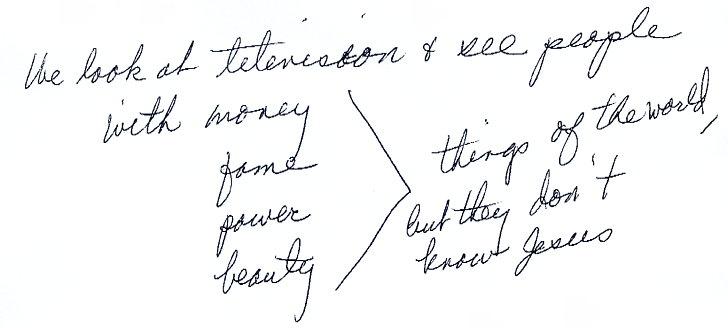 We look at television & see people
with money
fame
power
beauty
things of the world,
but they don't
know Jesus